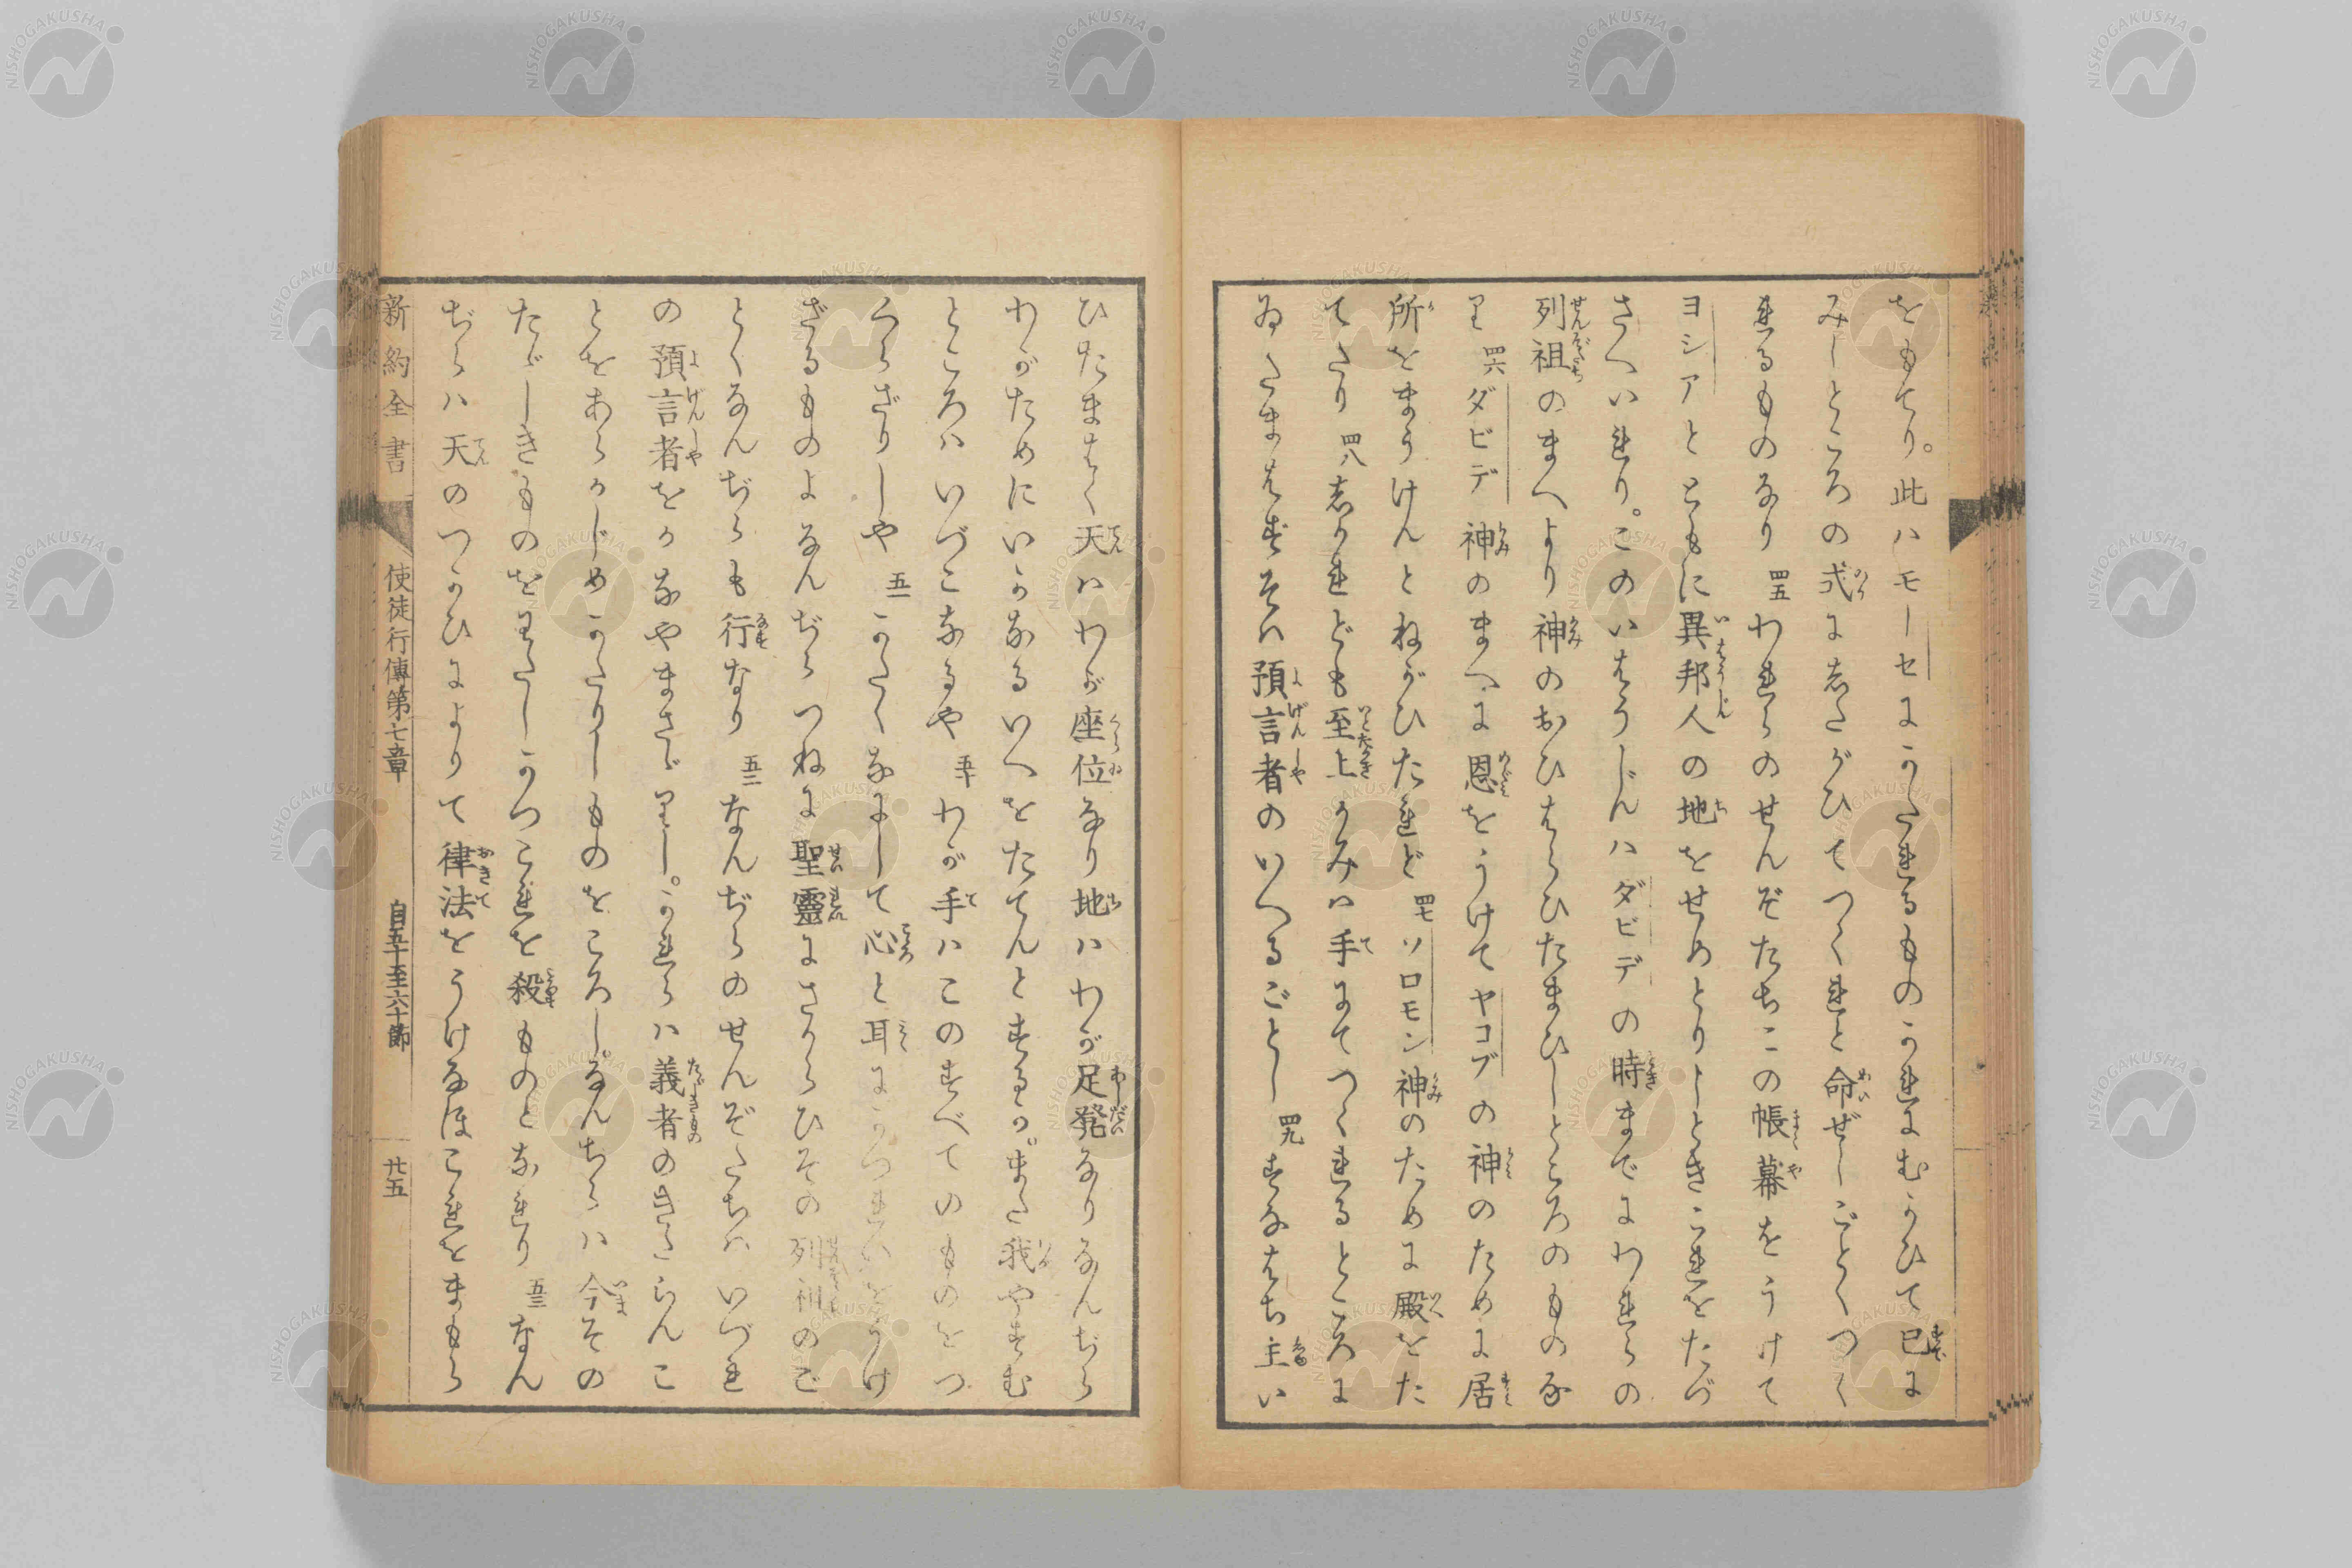 をもてり。此ハモーセにかたれるものかれにむかひて已に
みしところの式にしたがひてつくれと命ぜしごとくつく
れるものなり 四五 われらのせんぞたちこの帳幕をうけて
ヨシアとともに異邦人の地をせめとりしときこれをたづ
さへいれり。このいはうじんハダビデの時までにわれらの
列祖のまへより神のおひはらひたまひしところのものな
り 四六 ダビデ神のまへに恩をうけてヤコブの神のために居
所をまうけんとねがひたれど 四七 ソロモン神のために殿をた
てたり 四八 しかれども至上かみハ手にてつくれるところに
ゐたまはずそハ預言者のいへるごとし 四九 すなはち主い
ひたまはく天ハわが座位なり地ハわが足凳なりなんぢら
わがためにいかなるいへをたてんとするか。また我やすむ
ところハいづこなるや 五十 わが手ハこのすべてのものをつ
くらざりしや 五一 かたくなにして心と耳にかつれいをうけ
ざるものよなんぢらつねに聖靈にさからひその列祖のご
とくなんぢらも行なり 五二 なんぢらのせんぞたちハいづれ
の預言者をかなやまさゞりし。かれらハ義者のきたらんこ
とをあらかじめかたりしものをころし。なんぢらハ今その
たゞしきものをわたしかつこれを殺ものとなれり 五三 なん
ぢらハ天のつかひによりて律法をうけなほこれをまもら
新約全書 使徒行傳第七章 自五十至六十節 廿五